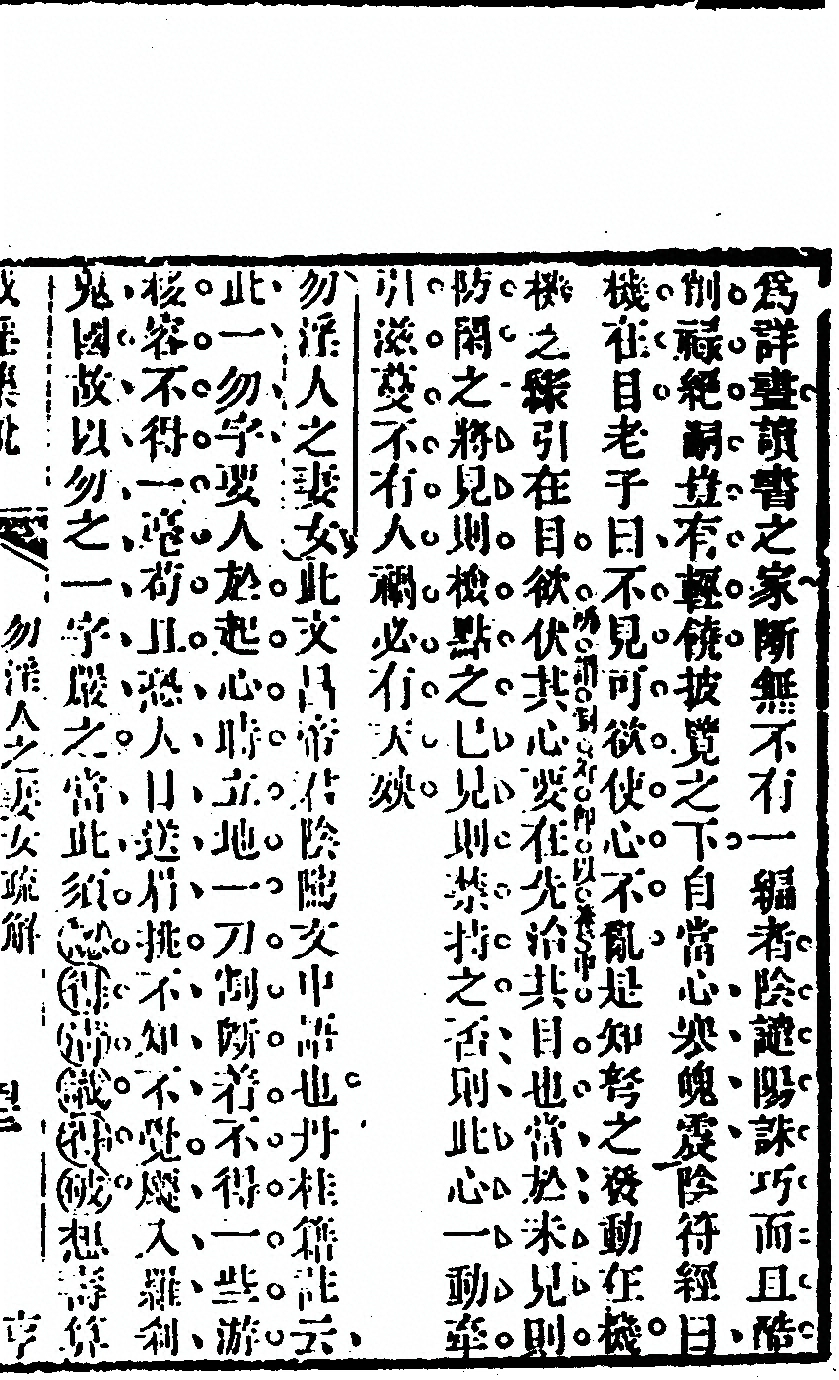 為詳晝讀書之家斷無不有一編者陰譴陽誅巧而且酷
削祿絕嗣豈有輕饒披覽之下自當心寒魄震陰符經曰
機在目老子曰不見可欲使心不亂是知弩之發動在機
機之綵引在目欲伏其心要在先治其目也當於未見則
所謂制外即以養中
防閑之將見則檢點之已見則禁持之否則此心一動牽
引滋蔓不有人禍必有天殃
勿淫人之妻女此文昌帝君陰隲文中語也丹桂籍註云
此一勿字要人於起心時立地一刀割斷着不得一些游
移容不得一毫苟且恐人目送眉挑不知不覺魔入羅刹
鬼國故以勿之一字嚴之當此須忍得清識得破想壽算
戒淫集
勿淫人之妻女疏解
亨